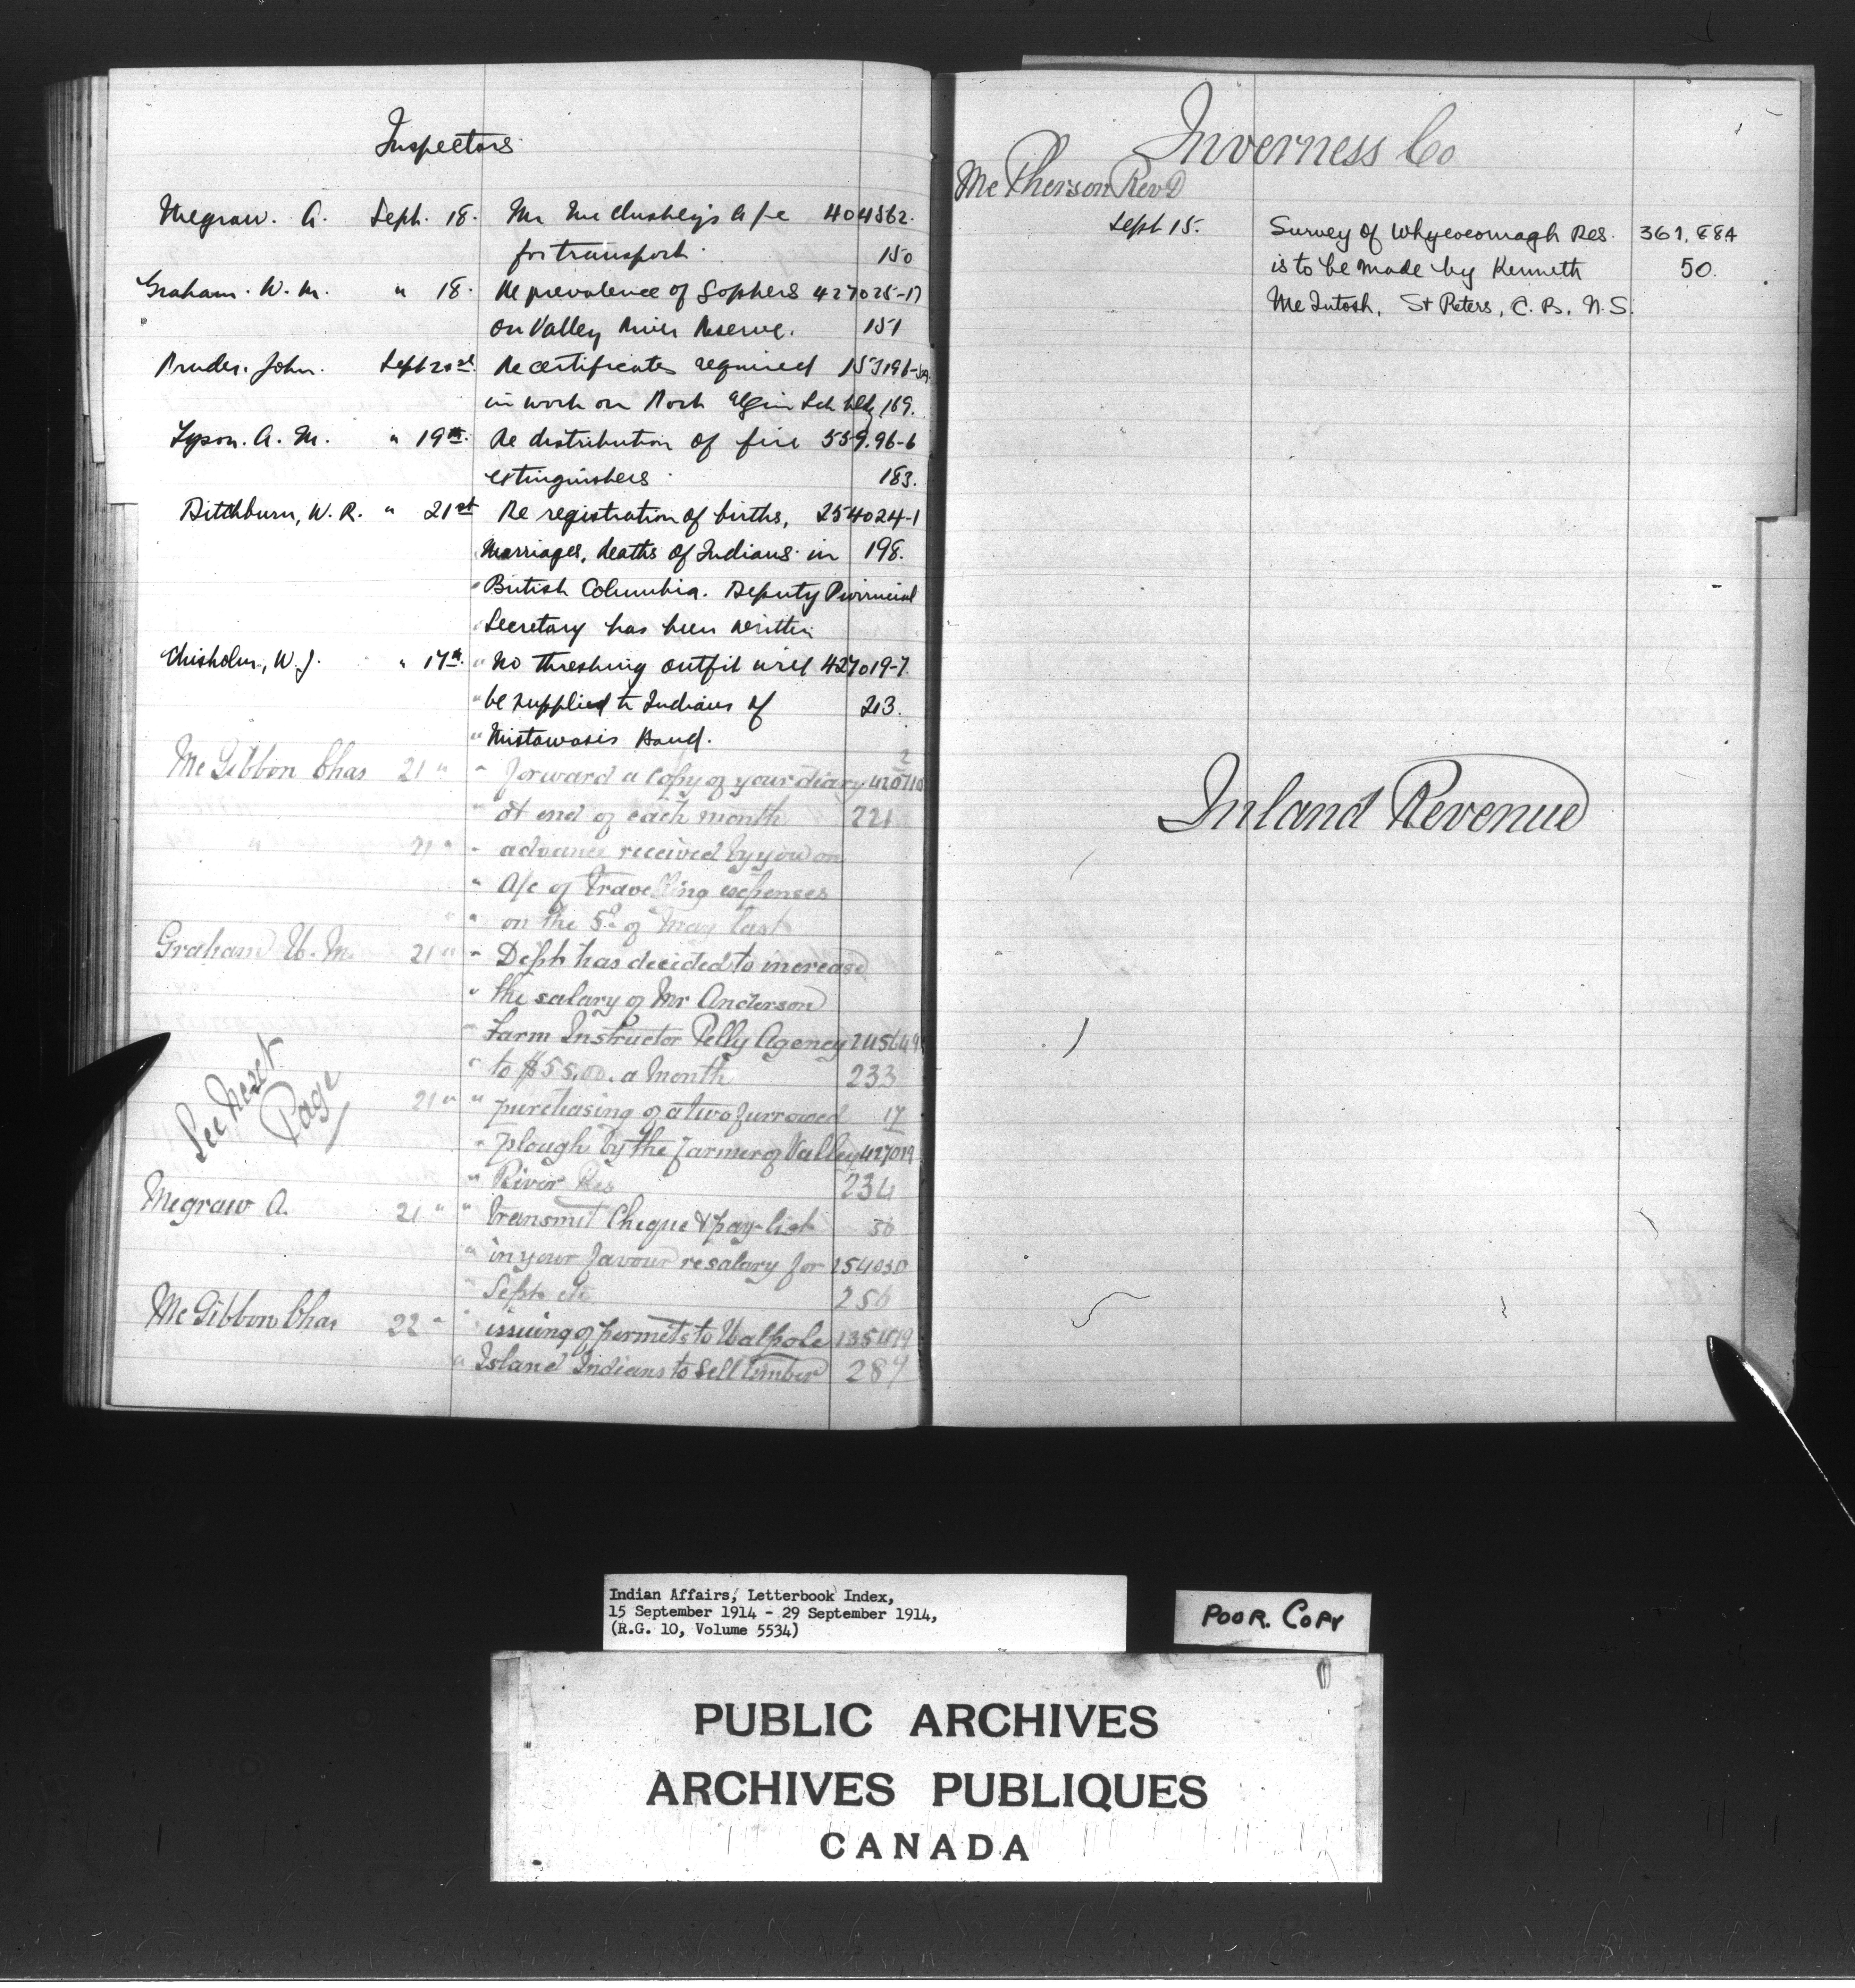 Inspectors
Megraw. A. Sept. 18. Mr Mc Cluskey's a/c 404562.
for transport. 150
Graham. W. M. " 18. Re prevalence of Gophers 427025-17
on Valley River Reserve. 151
John. Sept 21st Re certificates required 153196-
in work on Mort Elgin Sch bldg 169.
Tyson. A. M. " 19th. Re distribution of fire 559.96-6
extinguishers 183.
Ditchburn, W. R. " 21st Re registration of births, 254024-1
Marriages, deaths of Indians in 198.
" British Columbia. Deputy Provincial
" Secretary has been written
Chisholm, W. J. " 17th. " No threshing outfit will 427019-7.
" be supplied to Indians of 213.
" Mistawasis Band.
Mc Gibbon Chas 21 " " forward a copy of your diary 2 420710
" at end of each month 221
21 " " advance received by you on
" A/c of travelling expenses
" " on the 5th of May last
Graham W. M. 21 " " Dept has decided to increase
" the salary of Mr Anderson
" Farm Instructor Pelly Agency 245649
" to $55.00. a month 233
See Next
Page
21 " " purchasing of a two furrowed 17
" plough by the farmer of Valley 427019
" River Res 234
Megraw A. 21 " " transmit Cheque & pay-list 30
" in your favour re salary for 254030
" Sept etc 256
Mc Gibbon Chas 22 " " issuing of permits to Walpole
" Island Indians to sell timber 289
Inverness Co
Mc Pherson Rev D
Sept 15. Survey of Whycocomagh Res. 361,684
is to be made by Kenneth 50.
McIntosh, St Peters, C. B. N. S.
Inland Revenue
Indian Affairs, Letterbook Index,
15 September 1914 - 29 September 1914,
(R.G. 10, Volume 5534)
POOR. COPY
PUBLIC ARCHIVES
ARCHIVES PUBLIQUES
CANADA